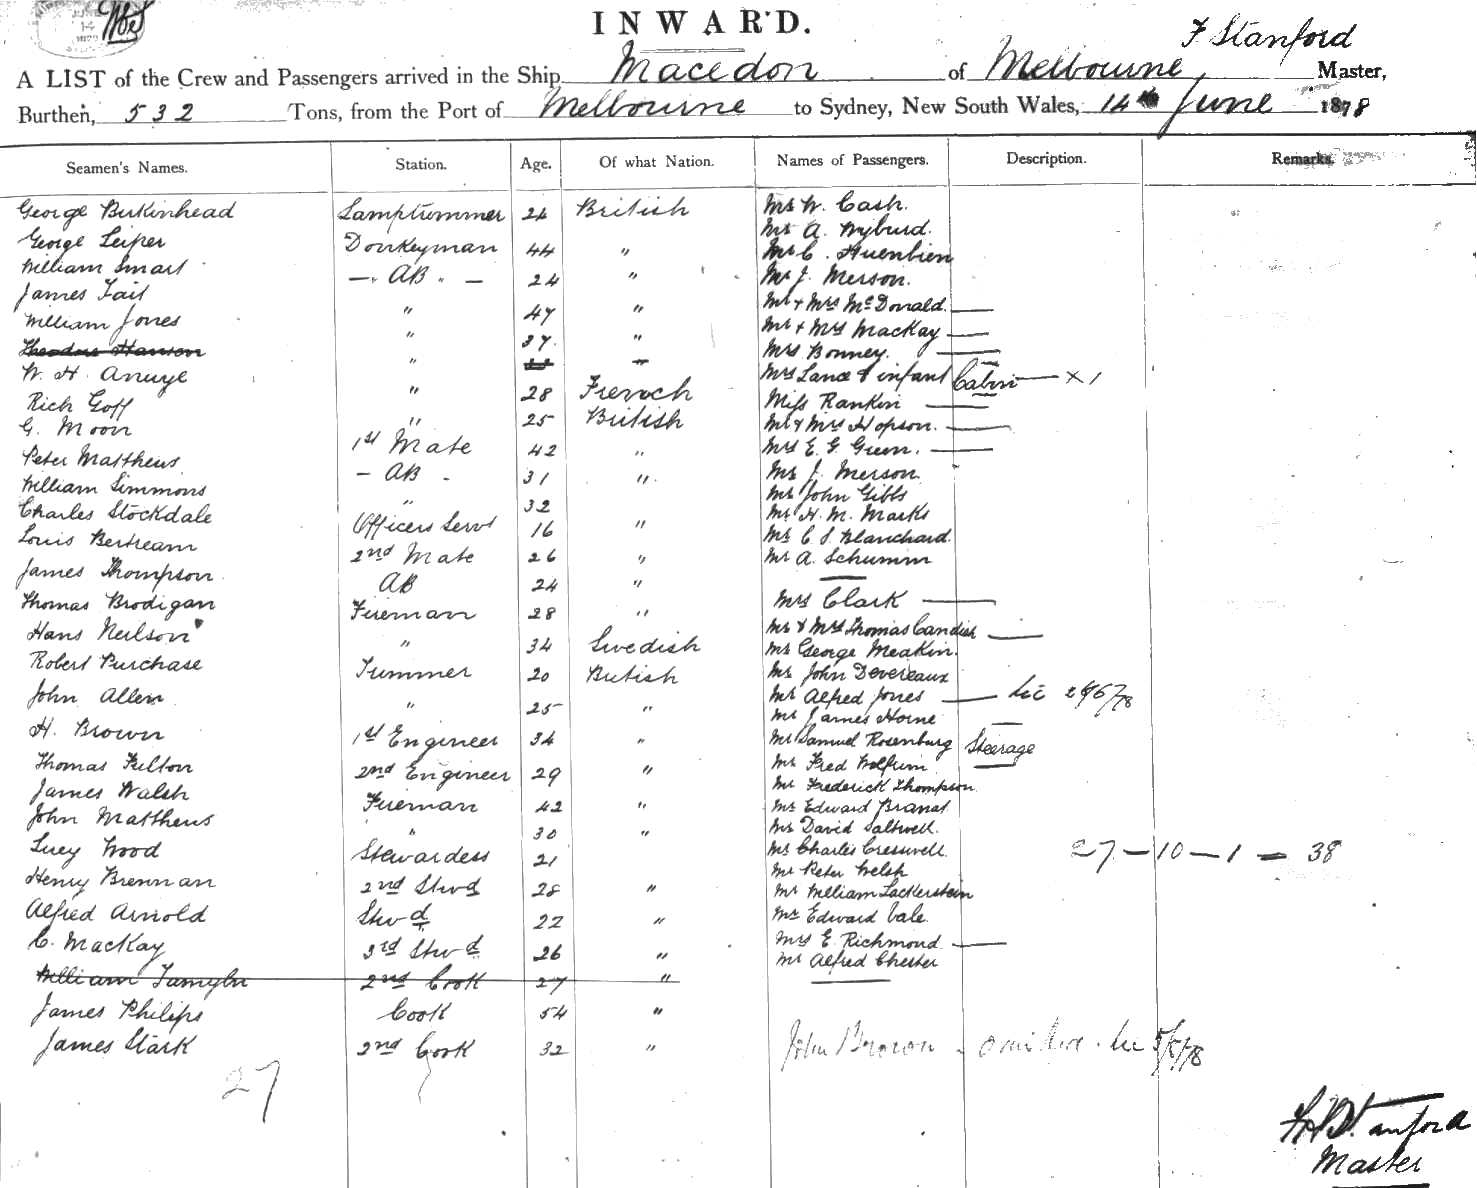 INWARD.
F Stanford
A LIST of the Crew and Passengers arrived in the Ship Macedon of Melbourne, Master,
Burthen, 532 Tons, from the Port of Melbourne to Sydney, New South Wales, 14th June 1878
Seamen's Names. Station. Age. Of what Nation. Names of Passengers. Description. Remarks.
George Birkinhead Lamptrimmer 24 British Mr W. Cash.
George Leiper Donkeyman 44 " Mr A. Wyburd.
William Smart —. AB . — 24 " Mr C.
James Tait " 47 " Mr J. Merson.
William Jones " 37. " Mr + Mrs McDonald. —
Theodore Hanson " " Mr + Mrs MacKay —
W. H. " 28 French Mrs Bonney. —
Rich Goff " 25 British Mrs Lance & infant Cabin — x 1
G. Moon 1st Mate 42 " Miss Rankin —
Peter Matthews — AB - 31 " Mr & Mrs Hopson. —
William Simmons " 32 Mrs E. G. Green. —
Charles Stockdale Officers Servt 16 " Mr J. Merson.
Louis Bertream 2nd Mate 26 " Mr John Gibbs
James Thompson AB 24 " Mr H. M. Marks
Thomas Brodigan Fireman 28 " Mr C. S. Blanchard.
Hans Neilson " 34 Swedish Mr A. Schumm
Robert Purchase Trimmer 20 British Mrs Clark —
John Allen " 25 " Mr & Mrs Thomas Candish —
H. Brown 1st Engineer 34 " Mr George Meakin.
Thomas Fulton 2nd Engineer 29 " Mr John Devereaux
James Walsh Fireman 42 " Mr Alfred Jones —
John Matthews " 30 " Mr James Horne
Lucy Wood Stewardess 21 Mr Samuel Rosenburg Steerage
Henry Brennan 2nd Stwd 28 " Mr Fred Wolfrum
Alfred Arnold Stwd 22 " Mr Frederick Thompson.
C. MacKay 3rd Stwd 26 " Mr Edward
William 2nd Cook 27 " Mr David Saltwell.
James Philips Cook 54 " Mr Charles Cresswell. 27 — 10 — 1 — 38
James Stark 2nd Cook 32 " Mr Peter Welsh
27 Mr William
Mr Edward Vale.
Mrs E. Richmond —
Mr Alfred Chester
John Brown - omitted
Stanford
Master